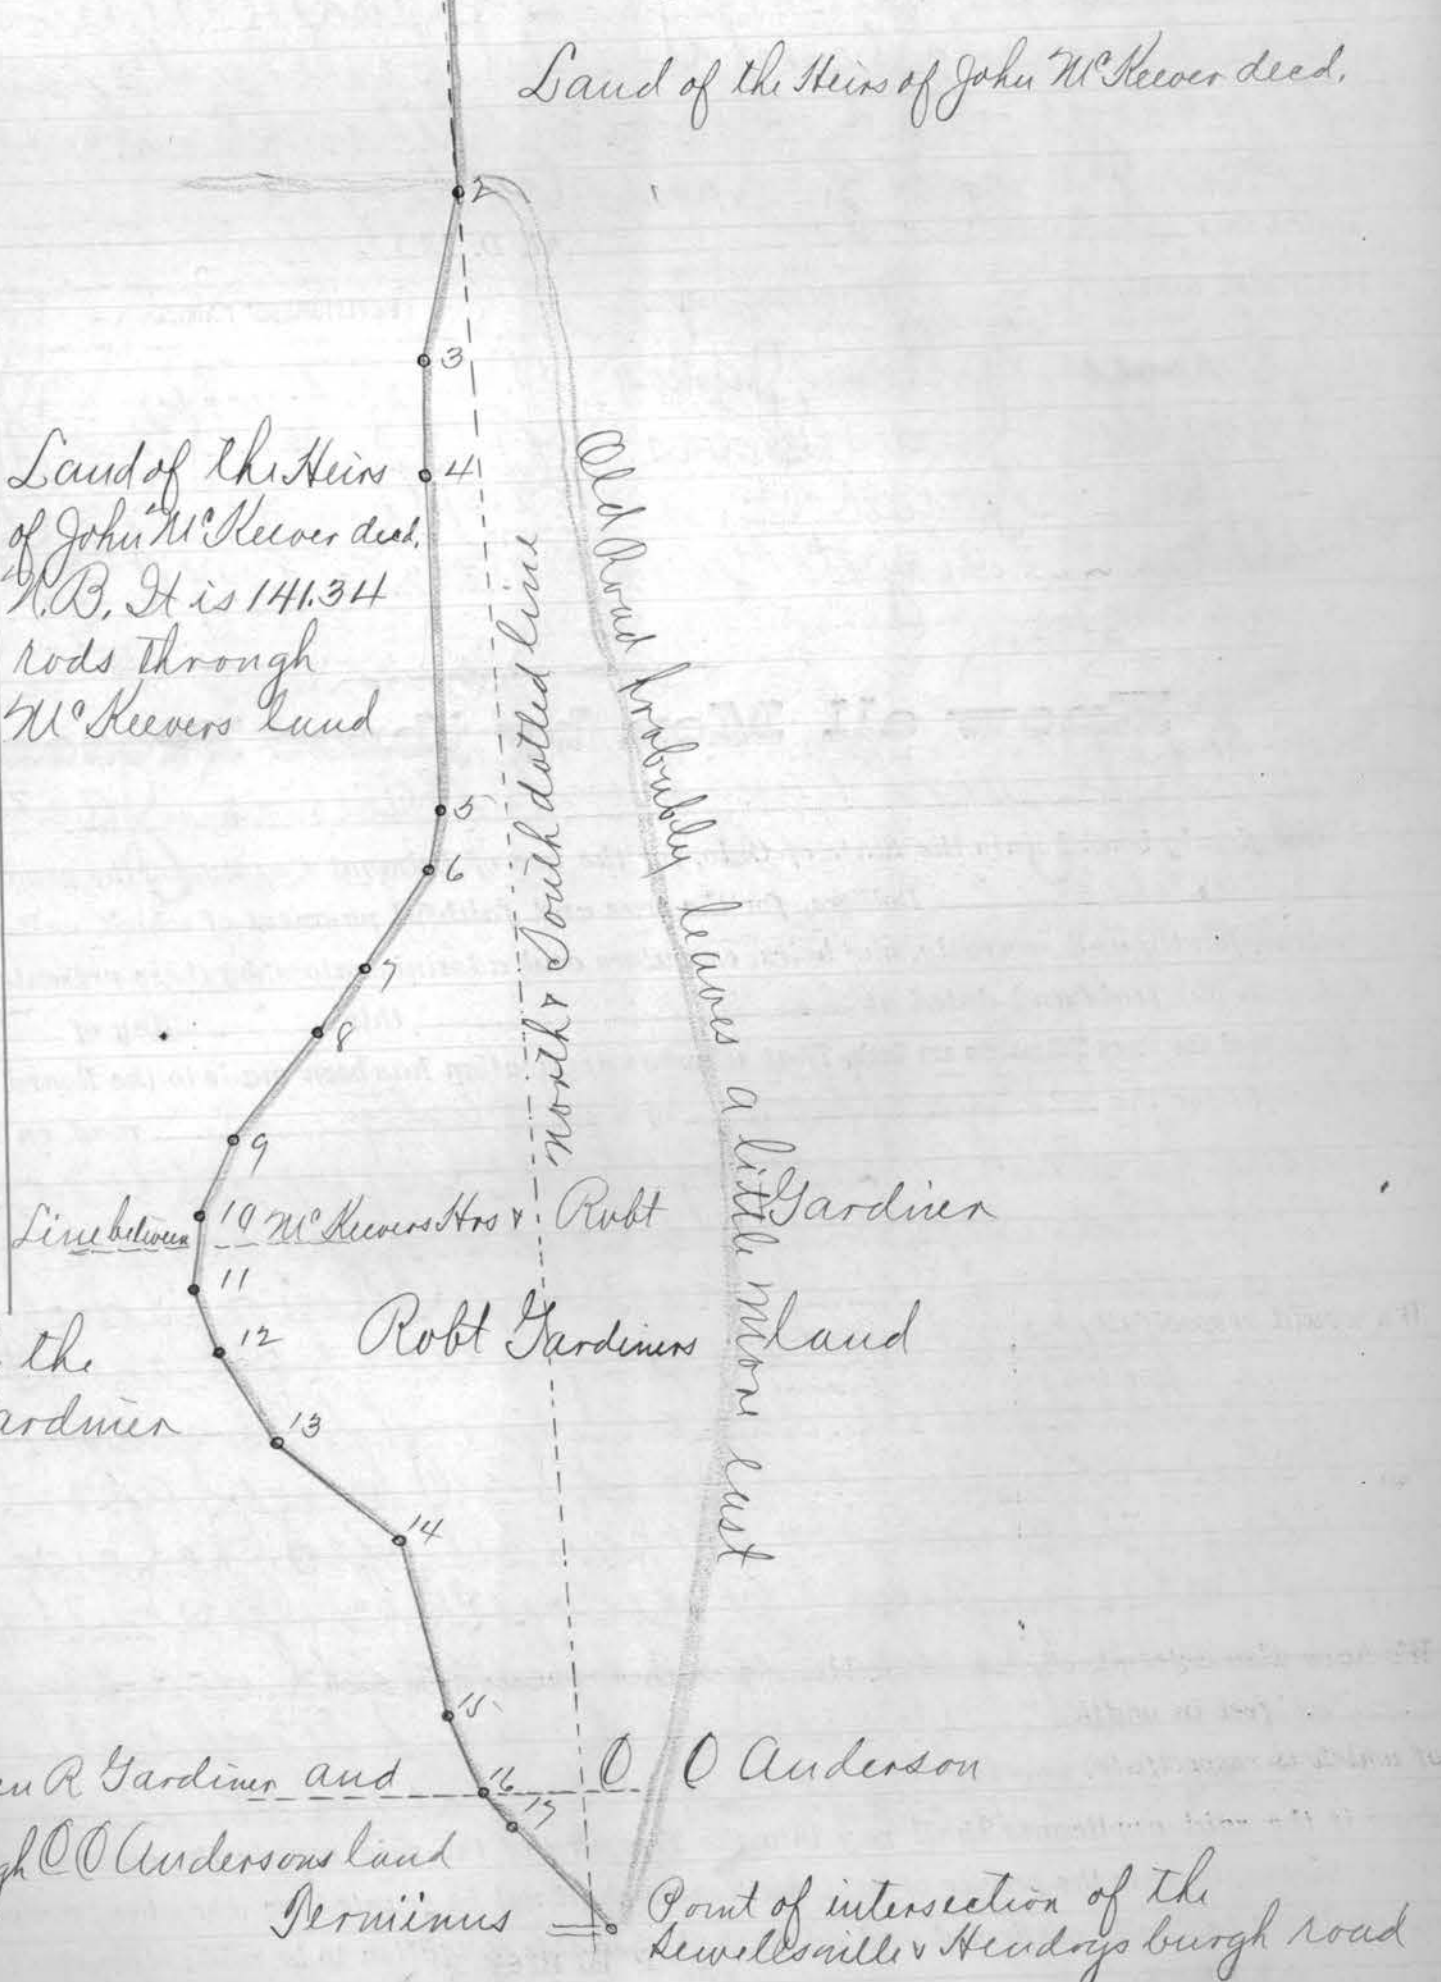 Land of the Heirs of John McKeever decd.
2
3
4
Land of the Heirs
of John McKeever decd.
N.B. It is 141.34
rods through
McKeevers land
north & South dotted line
Old Road probably leaves a little more east
5
6
7
8
9
10
Line between McKeevers Hrs & Robt Gardiner
11
12
Robt Gardiners land
the
ardiner
13
14
15
en R Gardiner and O O Anderson
16
17
gh O O Andersons land
Terminus
Point of intersection of the
Sewellsville & Hendrysburgh road